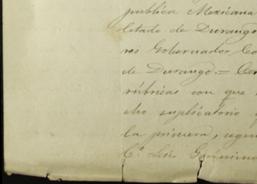 publica Mexicana
letado de Durango
nos Gobernador Co
de Durango.— Con
rúbricas con que
cho suplicatorio
la primera, segun
C. Luis Gerónimo